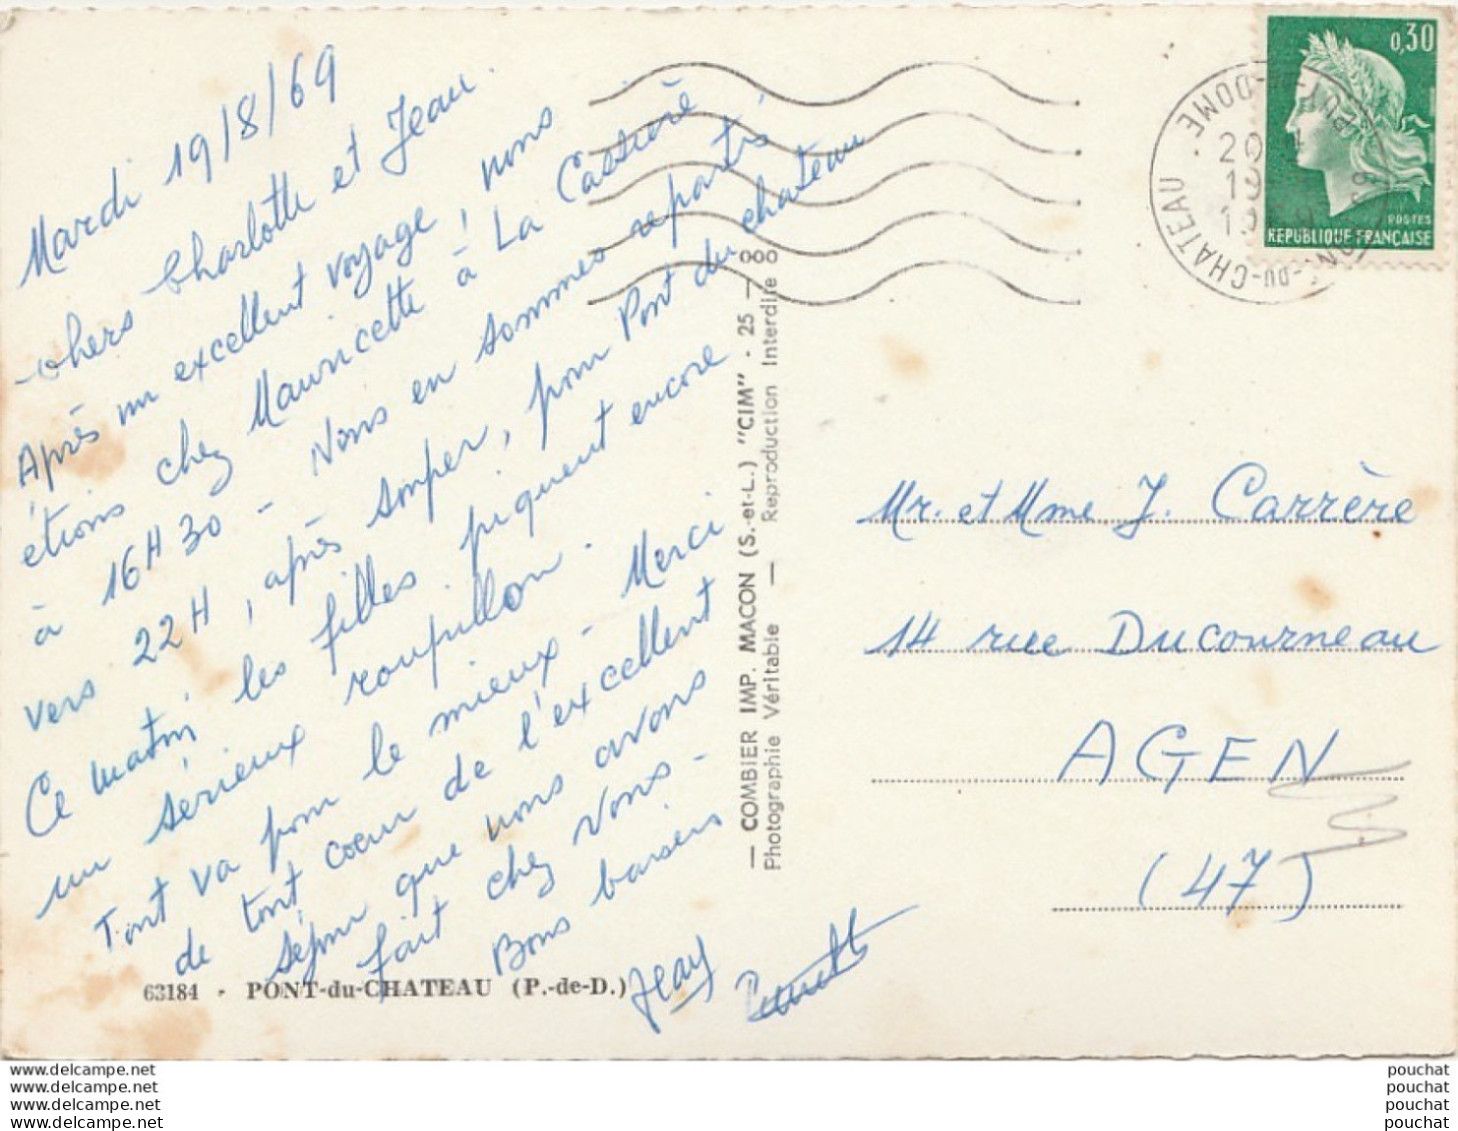 Mardi 19/8/69
chers Charlotte et Jean.
Après un excellent voyage, nous
étions chez Mauricette à La Castière
à 16H30 - Nous en sommes repartis
vers 22H, après souper, pour Pont du chateau
Ce matin les filles piquent encore
un sérieux roupillon.
Tout va pour le mieux - Merci
de tout coeur de l'excellent
séjour que nous avons
fait chez vous -
Bons baisers
Jean
63184 - PONT-du-CHATEAU (P.-de-D.)
— COMBIER IMP. MACON (S.-et-L.) "CIM" - 25 — 000
Photographie Véritable — Reproduction Interdite
0,30
POSTES
REPUBLIQUE FRANÇAISE
PONT-DU-CHATEAU
PUY-DE-DOME
Mr. et Mme J. Carrère
14 rue Ducourneau
AGEN
(47)
www.delcampe.net pouchat
www.delcampe.net pouchat
www.delcampe.net pouchat
www.delcampe.net pouchat